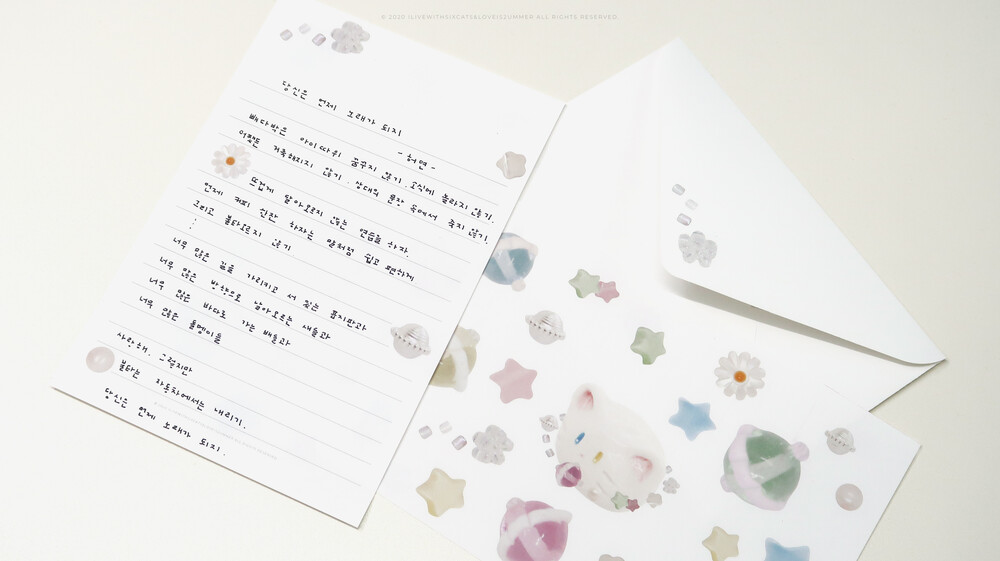 © 2020 ILIVEWITHSIXCATS&LOVEIS2UMMER ALL RIGHTS RESERVED.
당신은 언제 노래가 되지
- 허연 -
빼다박은 아이 따위 꿈꾸지 않기. 소식에 놀라지 않기.
어쨌든 거룩해지지 않기. 상대의 문장 속에서 죽지 않기.
뜨겁게 달아오르지 않는 연습을 하자.
언제 커피 한잔 하자는 말처럼 쉽고 편하게
그리고 불타오르지 않기.
⋮
너무 많은 길을 가리키고 서 있는 표지판과
너무 많은 방향으로 날아오르는 새들과
너무 많은 바다로 가는 배들과
너무 많은 돌멩이들
사랑해. 그렇지만
불타는 자동차에서는 내리기.
당신은 언제 노래가 되지.